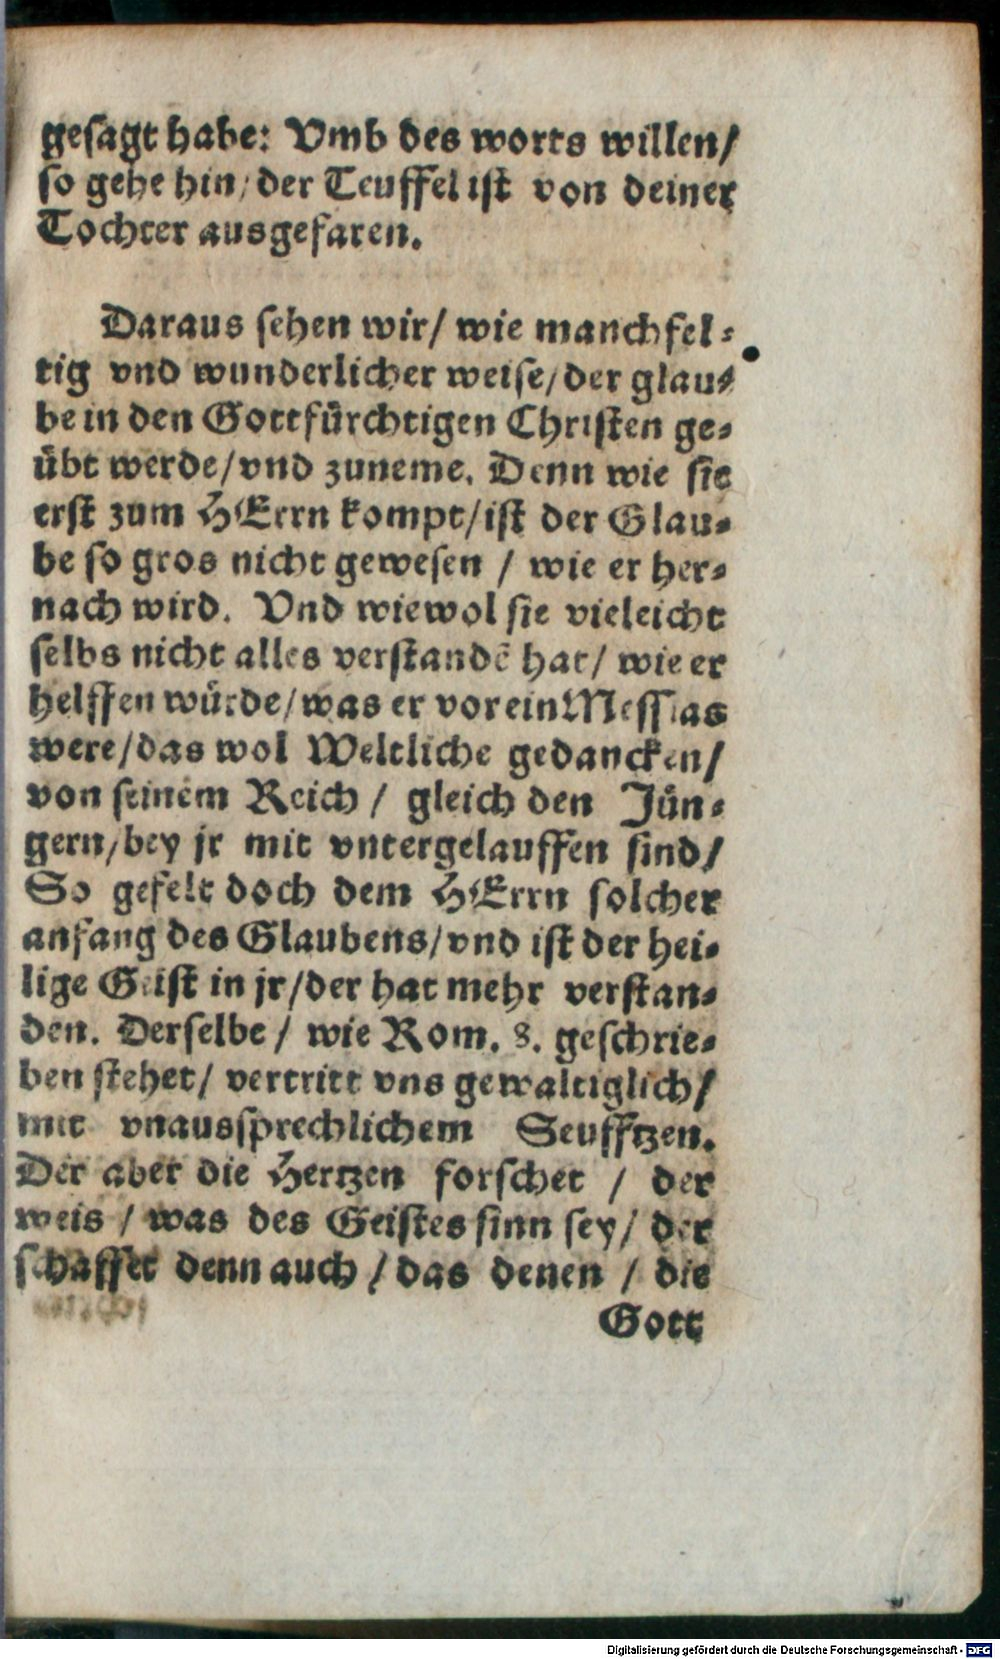 gesagt habe: Vmb des worts willen/
so gehe hin/ der Teuffel ist von deiner
Tochter ausgefaren.
Daraus sehen wir/ wie manchfel-
tig vnd wunderlicher weise/ der glau-
be in den Gottfürchtigen Christen ge-
übt werde/ vnd zuneme. Denn wie sie
erst zum HErrn kompt/ ist der Glau-
be so gros nicht gewesen / wie er her-
nach wird. Vnd wiewol sie vieleicht
selbs nicht alles verstandē hat/ wie er
helffen würde/ was er vor ein Messias
were/ das wol Weltliche gedancken/
von seinem Reich / gleich den Jün-
gern/ bey jr mit vntergelauffen sind/
So gefelt doch dem HErrn solcher
anfang des Glaubens/ vnd ist der hei-
lige Geist in jr/ der hat mehr verstan-
den. Derselbe / wie Rom. 8. geschrie-
ben stehet/ vertritt vns gewaltiglich/
mit vnaussprechlichem Seufftzen.
Der aber die Hertzen forschet / der
weis / was des Geistes sinn sey/ der
schaffet denn auch / das denen / die
Gott
Digitalisierung gefördert durch die Deutsche Forschungsgemeinschaft - DFG